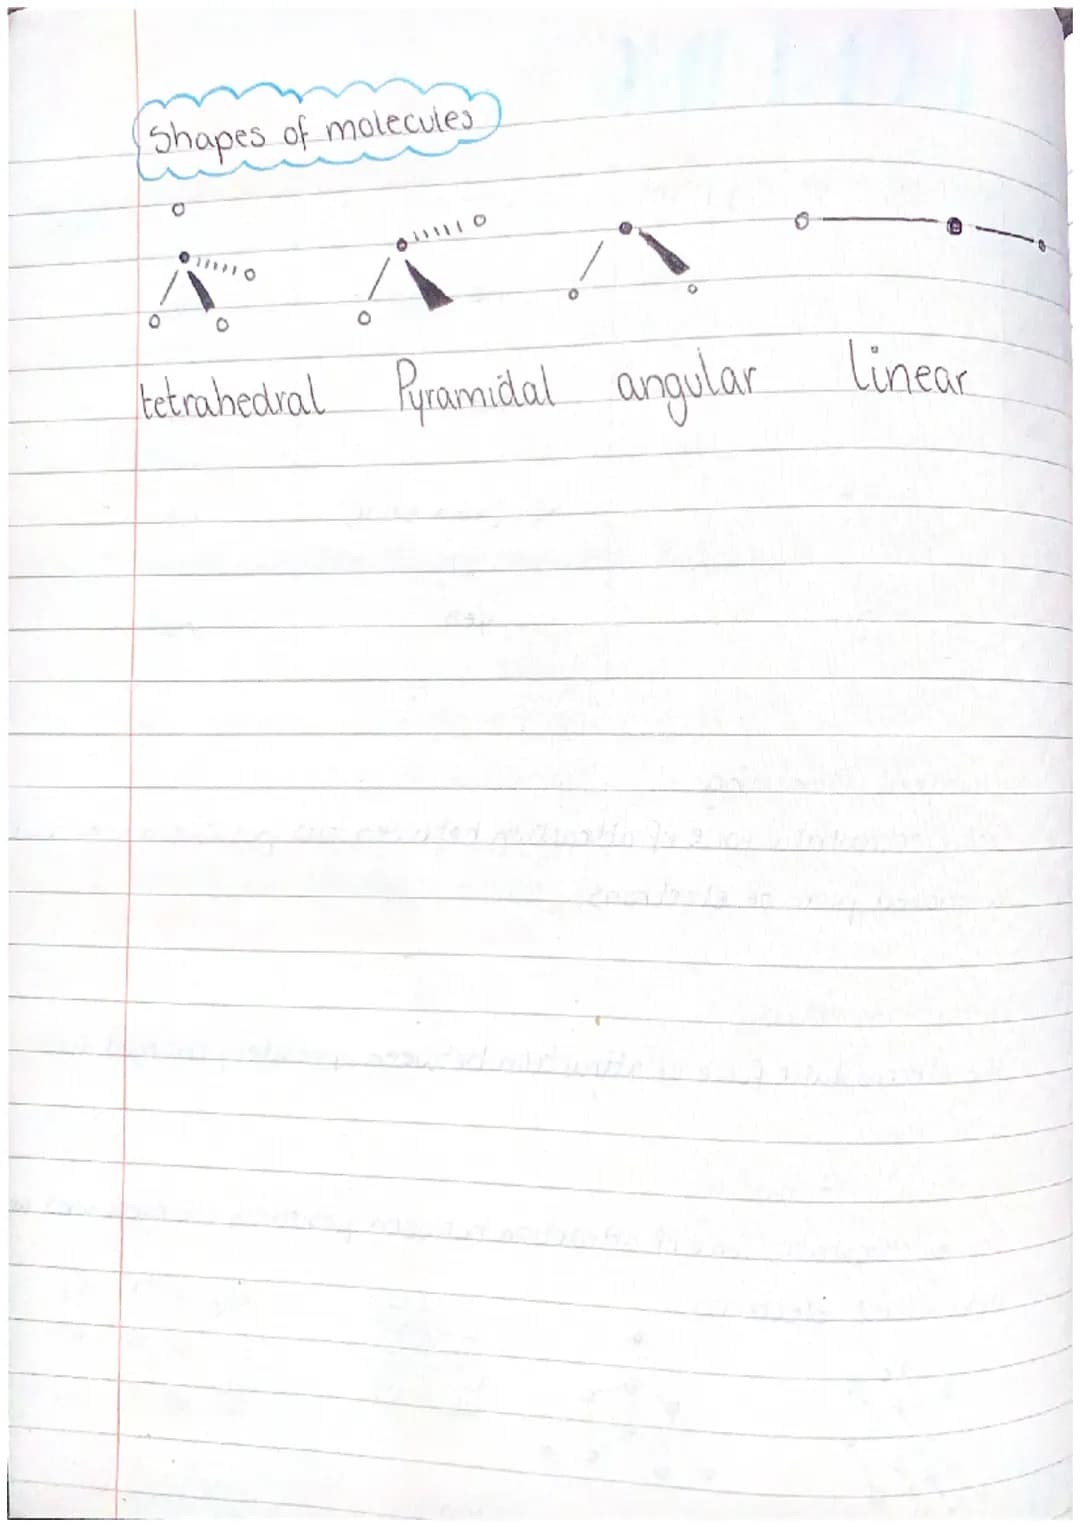 Shapes of molecules
tetrahedral Pyramidal angular linear